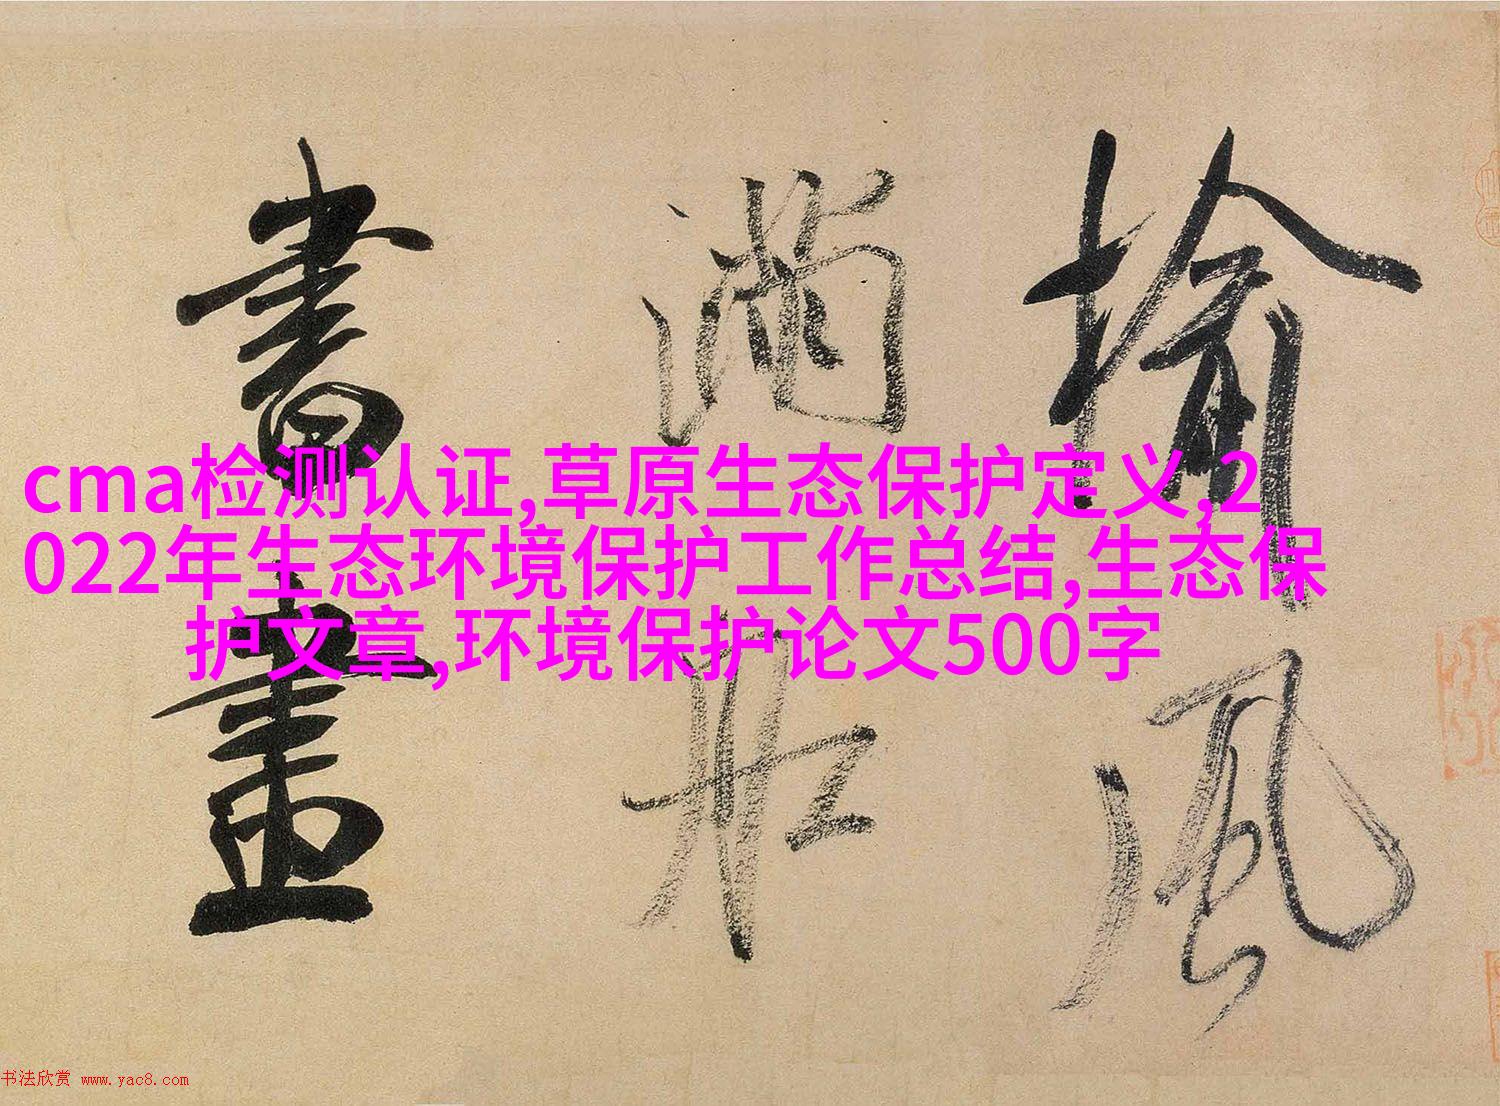 揄
風
滿
壯
書
畫
cma检测认证,草原生态保护定义,2
022年生态环境保护工作总结,生态保
护文章,环境保护论文500字
书法欣赏 www.yac8.com